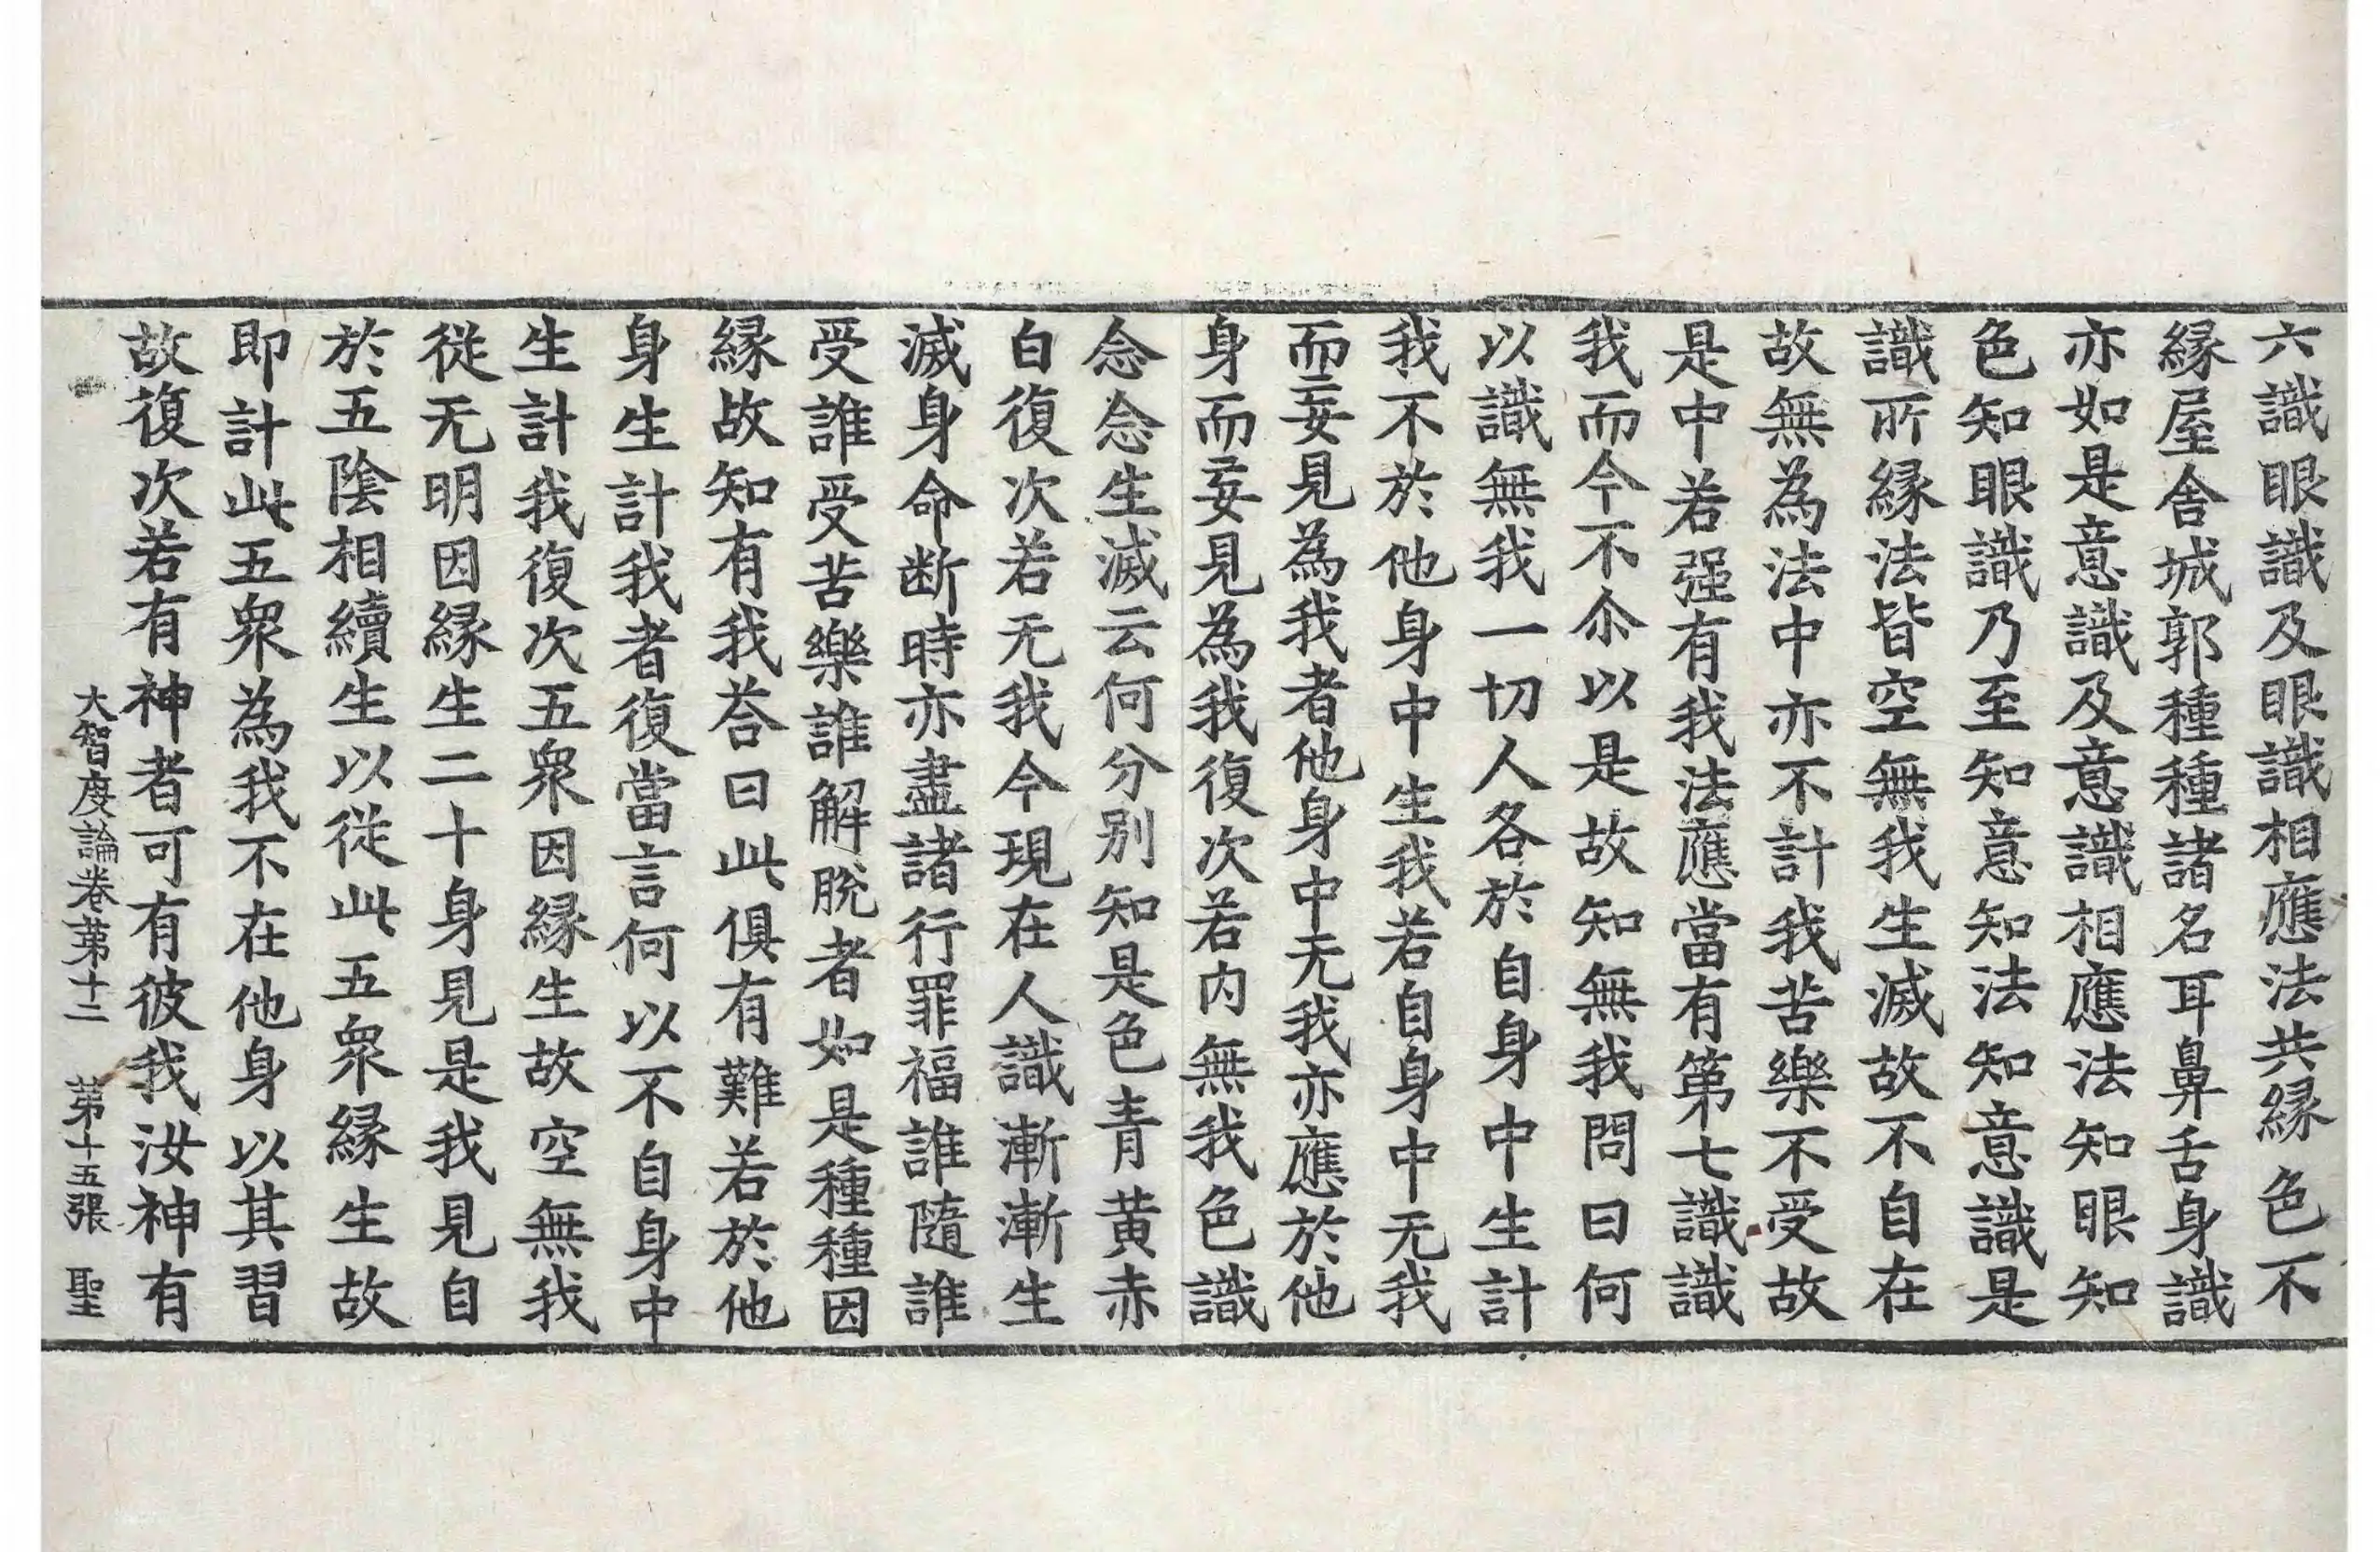 六識眼識及眼識相應法共縁色不
縁屋舍城郭種種諸名耳鼻舌身識
亦如是意識及意識相應法知眼知
色知眼識乃至知意知法知意識是
識所縁法皆空無我生滅故不自在
故無為法中亦不計我苦樂不受故
是中若强有我法應當有第七識識
我而今不尒以是故知無我問曰何
以識無我一切人各於自身中生計
我不於他身中生我若自身中无我
而妄見為我者他身中无我亦應於他
身而妄見為我復次若内無我色識
念念生滅云何分别知是色青黄赤
白復次若无我今現在人識漸漸生
滅身命断時亦盡諸行罪福誰隨誰
受誰受苦樂誰解脫者如是種種因
縁故知有我荅曰此俱有難若於他
身生計我者復當言何以不自身中
生計我復次五衆因縁生故空無我
從无明因縁生二十身見是我見自
於五陰相續生以從此五衆縁生故
即計此五衆為我不在他身以其習
故復次若有神者可有彼我汝神有
大智度論卷第十二 第十五張 聖